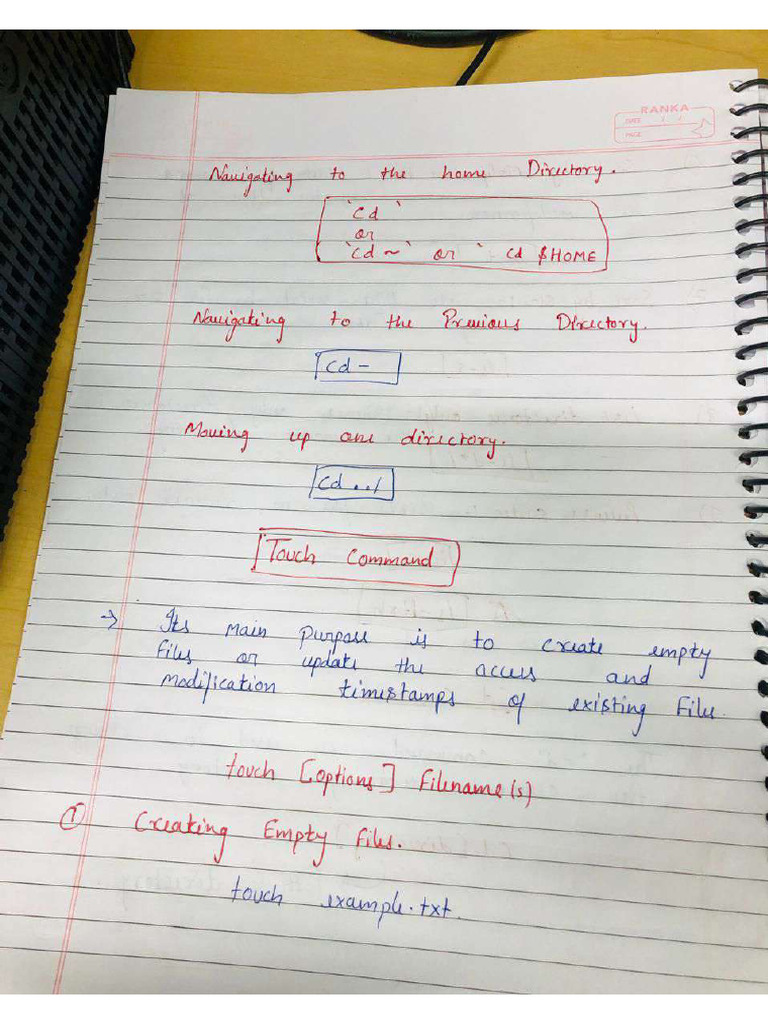 RANKA
DATE / /
PAGE
Navigating to the home Directory.
`cd `
or
`cd ~` or ` cd $HOME
Navigating to the Previous Directory.
cd -
Moving up one directory.
cd ../
Touch Command
→ Its main purpose is to create empty
files or update the access and
modification timestamps of existing files.
touch [options] filename(s)
① Creating Empty files.
touch example.txt.